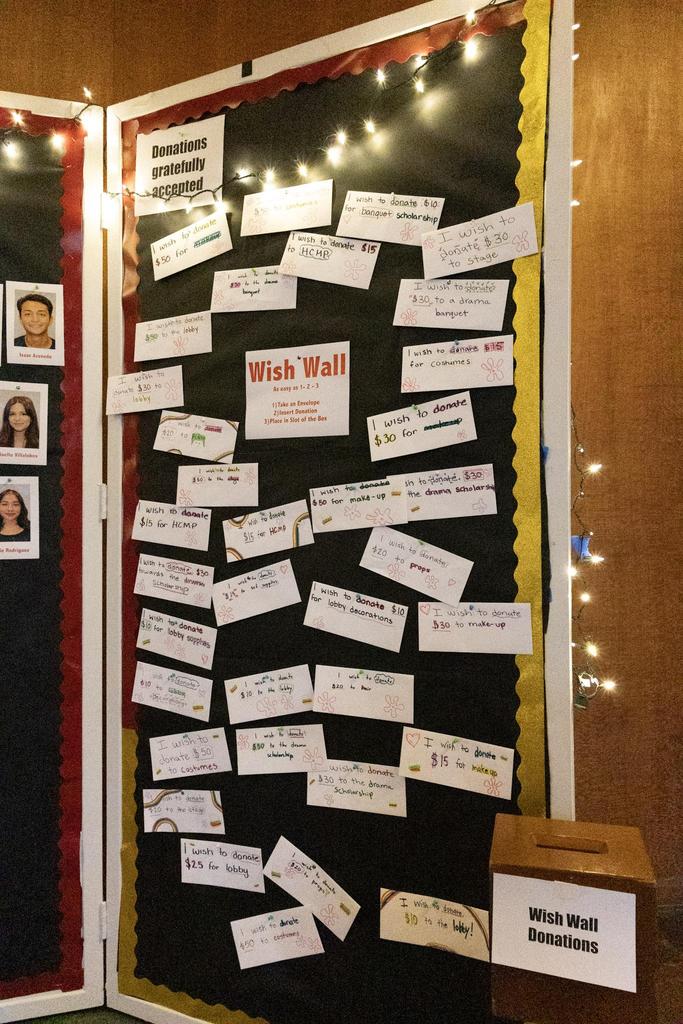 Donations
gratefully
accepted
I wish to donate
$50 for
to costumes
I wish to donate $10
for banquet scholarship
I wish to
donate $30
to stage
I wish to donate $15
to HCMP
I wish to donate
to the drama
banquet
I wish to donate
$30 to a drama
banquet
I wish to donate
$50 to the lobby
I wish to donate $15
for costumes
Wish Wall
As easy as 1 - 2 - 3
1)Take an Envelope
2)Insert Donation
3)Place in Slot of the Box
I wish to
donate $30 to
lobby
I wish to donate
$30 for make-up
I wish to donate
$20 to
I wish to donate
to the stage
I wish to donate
$50 for make-up
sh to donate $30
the drama scholarsh
I wish to donate
$15 for HCMP
wish to donate
$15 for HCMP
I wish to donate
$20 to props
I wish to donate $30
towards the
scholarship
I wish to donate
I wish to donate $10
for lobby decorations
I wish to donate
$30 to make-up
I wish to donate
$10 for lobby supplies
I wish to donate
$10 to
I wish to donate
$10 to the lobby
I wish to donate
$20 to hair
I wish to
donate $50
to costumes
I wish to donate
$50 to the drama
scholarship
I wish to donate
$15 for makeup
I wish to donate
$30 to the drama
scholarship
I wish to donate
$20 to the stage
I wish to donate
$25 for lobby
I wish to donate
to props!
I wish to donate
$50 to costumes
I wish to donate
$10 to the lobby!
Wish Wall
Donations
Isaac Acevedo
Villalobos
Rodriguez